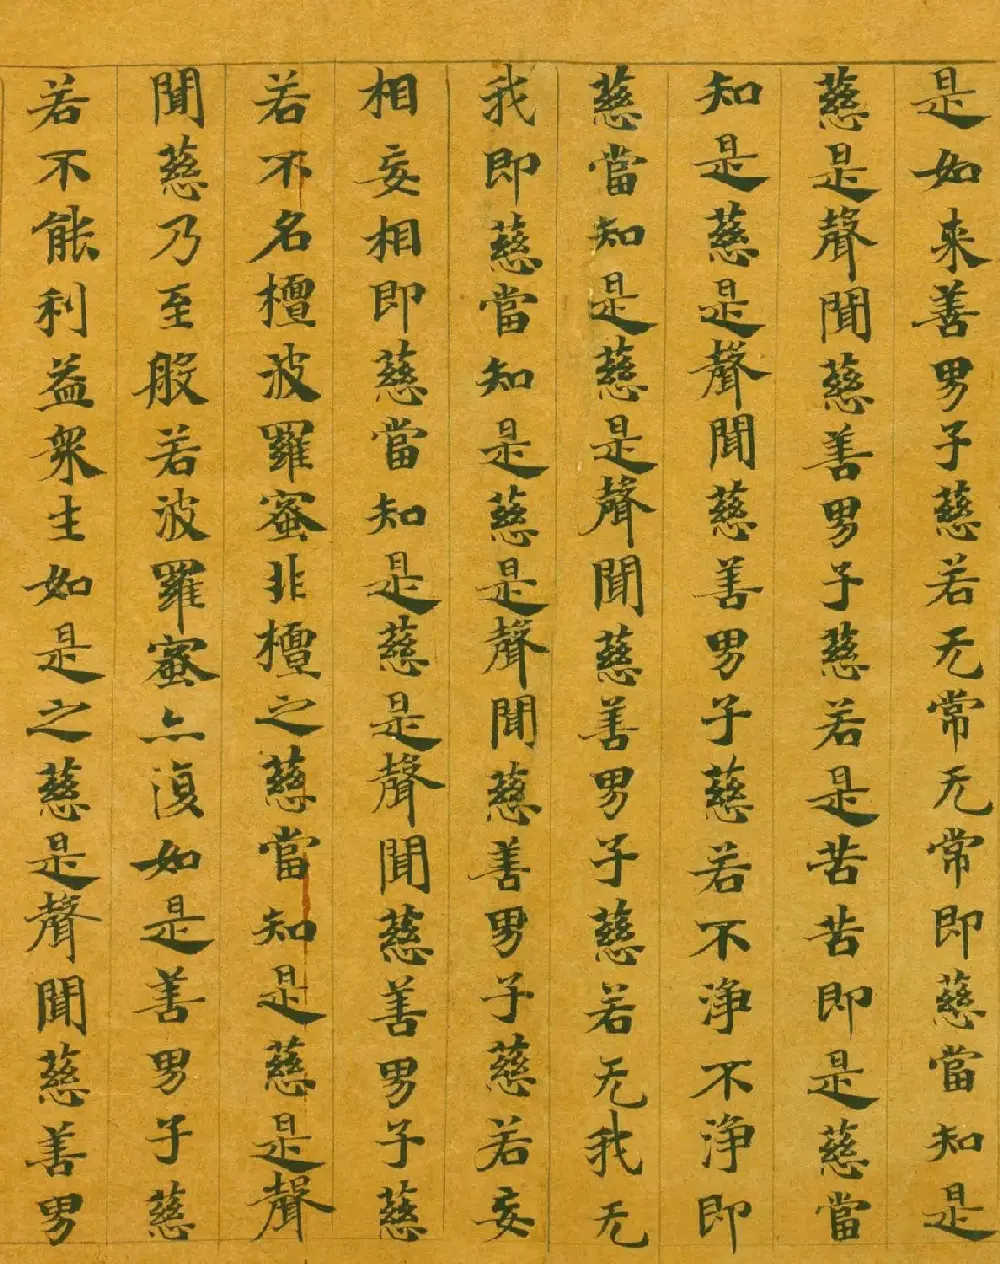 是如来善男子慈若无常无常即慈當知是
慈是聲聞慈善男子慈若是苦苦即是慈當
知是慈是聲聞慈善男子慈若不淨不淨即
慈當知是慈是聲聞慈善男子慈若无我无
我即慈當知是慈是聲聞慈善男子慈若妄
相妄相即慈當知是慈是聲聞慈善男子慈
若不名檀波羅蜜非檀之慈當知是慈是聲
聞慈乃至般若波羅蜜亦復如是善男子慈
若不能利益衆生如是之慈是聲聞慈善男